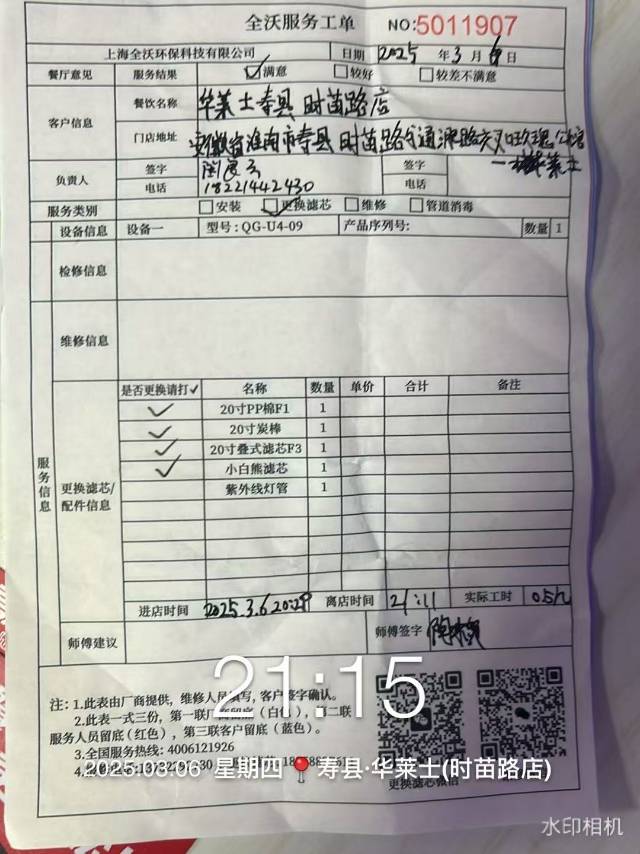 全沃服务工单 NO:5011907
上海全沃环保科技有限公司 日期 2025 年 3 月 6 日
餐厅意见 服务结果 满意 较好 较差不满意
客户信息 餐饮名称 华莱士寿县时苗路店
门店地址 安徽省淮南市寿县时苗路与通淝路交叉
华莱士
负责人 签字 签字
电话 18221442430 电话
服务类别 安装 更换滤芯 维修 管道消毒
设备信息 设备一 型号:QG-U4-09 产品序列号: 数量 1
检修信息
维修信息
服务信息
更换滤芯/
配件信息
是否更换请打✓ 名称 数量 单价 合计 备注
✓ 20寸PP棉F1 1
✓ 20寸炭棒 1
✓ 20寸叠式滤芯F3 1
✓ 小白熊滤芯 1
紫外线灯管 1
进店时间 2025.3.6 20:29 离店时间 21:11 实际工时 0.5h
师傅建议 师傅签字
21:15
注:1.此表由厂商提供,维修人员填写,客户签字确认。
2.此表一式三份,第一联厂商留底(白色),第二联
服务人员留底(红色),第三联客户留底(蓝色)。
3.全国服务热线:4006121926
2025-03-06 星期四 寿县·华莱士(时苗路店)
更换滤芯微信
水印相机